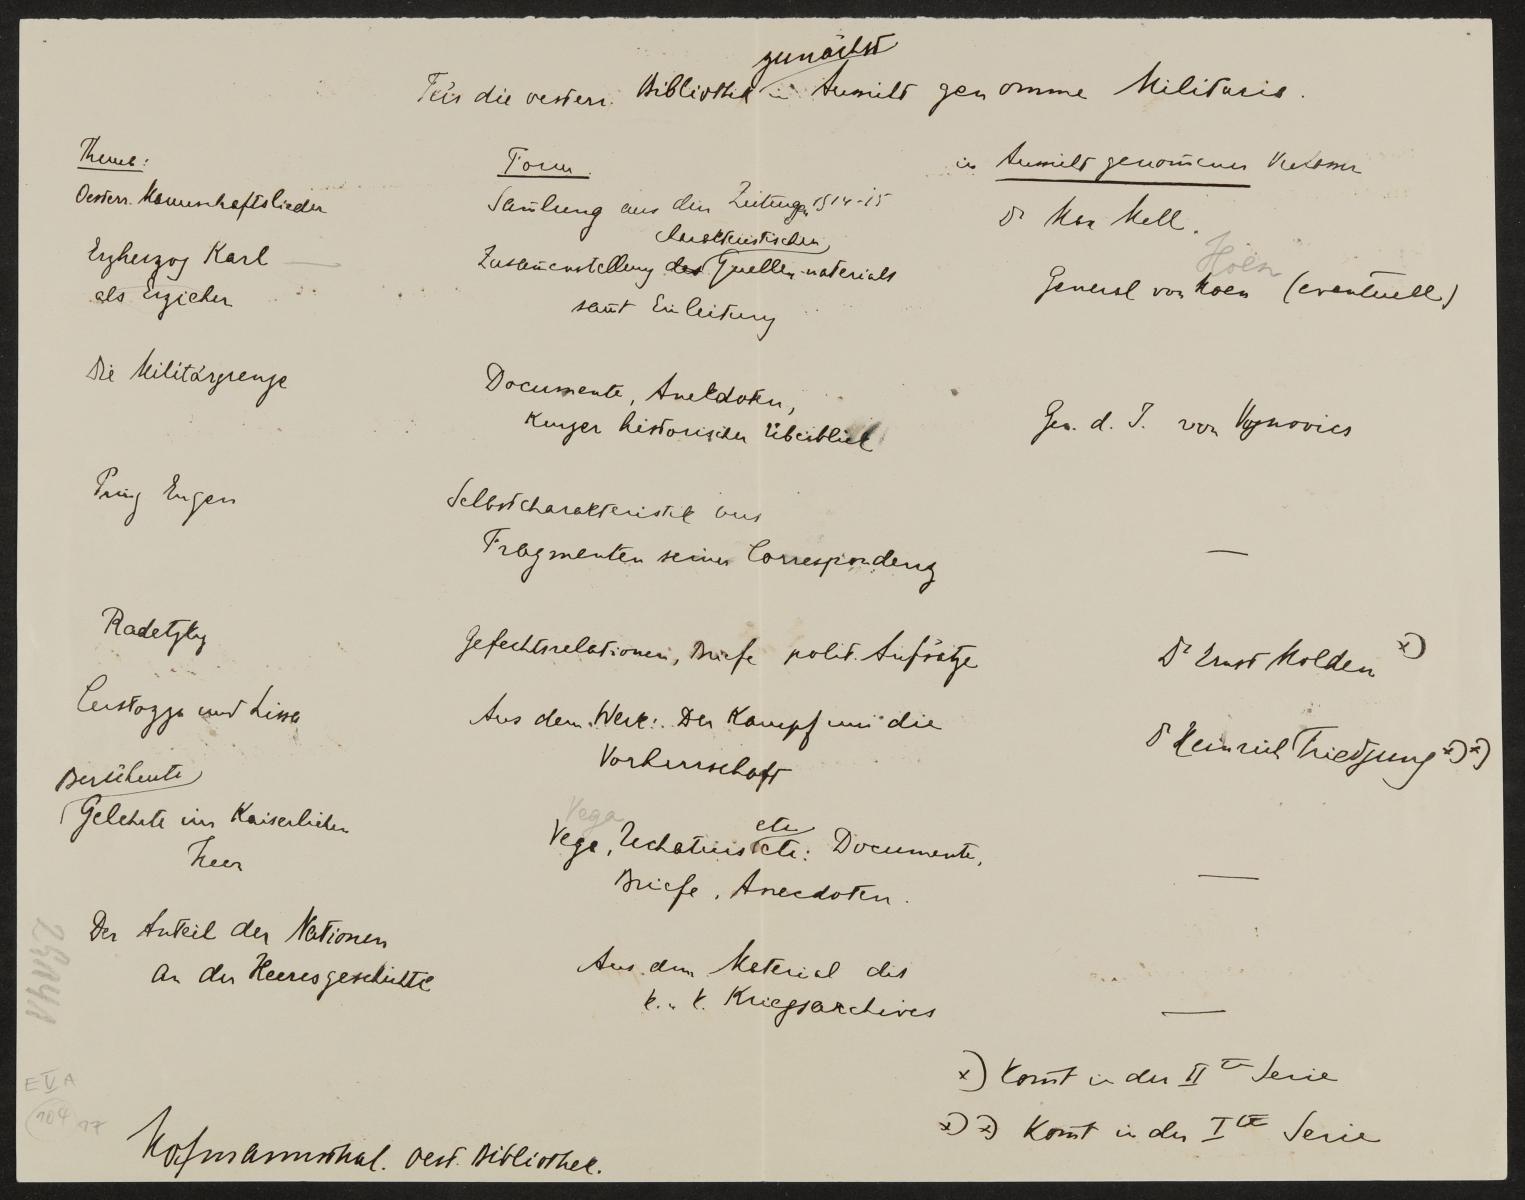 zunächst
Für die oesterr. Bibliothek in Aussicht genommene Militaria.
Thema: Form. in Aussicht genommener Verfasser
Oesterr. Mannschaftslieder Sam̄lung aus den Zeitungen 1914-15 Dr Max Mell.
Erzherzog Karl — charakteristischen Höen
als Erzieher Zusam̄enstellung des Quellenmaterials General von Hoen (eventuell)
sam̄t Einleitung
Die Militärgrenze Documente, Anekdoten,
Kurzer historischer Überblick Gen. d. I. von Wojnovics
Prinz Eugen Selbstcharakteristik aus
Fragmenten seiner Correspondenz —
Radetzky Gefechtsrelationen, Briefe polit. Aufsätze Dr Ernst Molden x)
Custozza und Lissa Aus dem Werk: Der Kampf um die
Vorherrschaft Dr Heinrich Friedjung x) x)
Berühmte
Gelehrte im Kaiserlichen Vega etc
Heer Vega, Uchatius etc: Documente,
Briefe, Anecdoten. —
Der Anteil der Nationen
an der Heeresgeschichte Aus dem Material des
k. u. k. Kriegsarchives —
x) Kom̄t in der IIten Serie
x) x) Kom̄t in der Iten Serie
E V A
104 17
Hofmannsthal. Oest. Bibliothek.